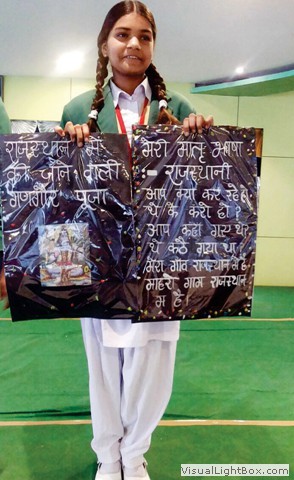 राजस्थान में
की जाने वाली
गणगौर पूजा
मेरी मातृ भाषा
- राजस्थानी
आप क्या कर रहे हो
थे कै करो हो?
आप कहा गए थे?
थे कठै गया था?
मेरा गाँव राजस्थान में है
माहरो गाम राजस्थान
म है।
VisualLightBox.com